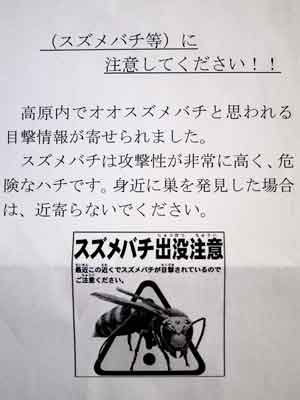 （スズメバチ等）に
注意してください！！
高原内でオオスズメバチと思われる
目撃情報が寄せられました。
スズメバチは攻撃性が非常に高く、危
険なハチです。身近に巣を発見した場合
は、近寄らないでください。
スズメバチ出没注意
最近この近くでスズメバチが目撃されているので
ご注意ください。